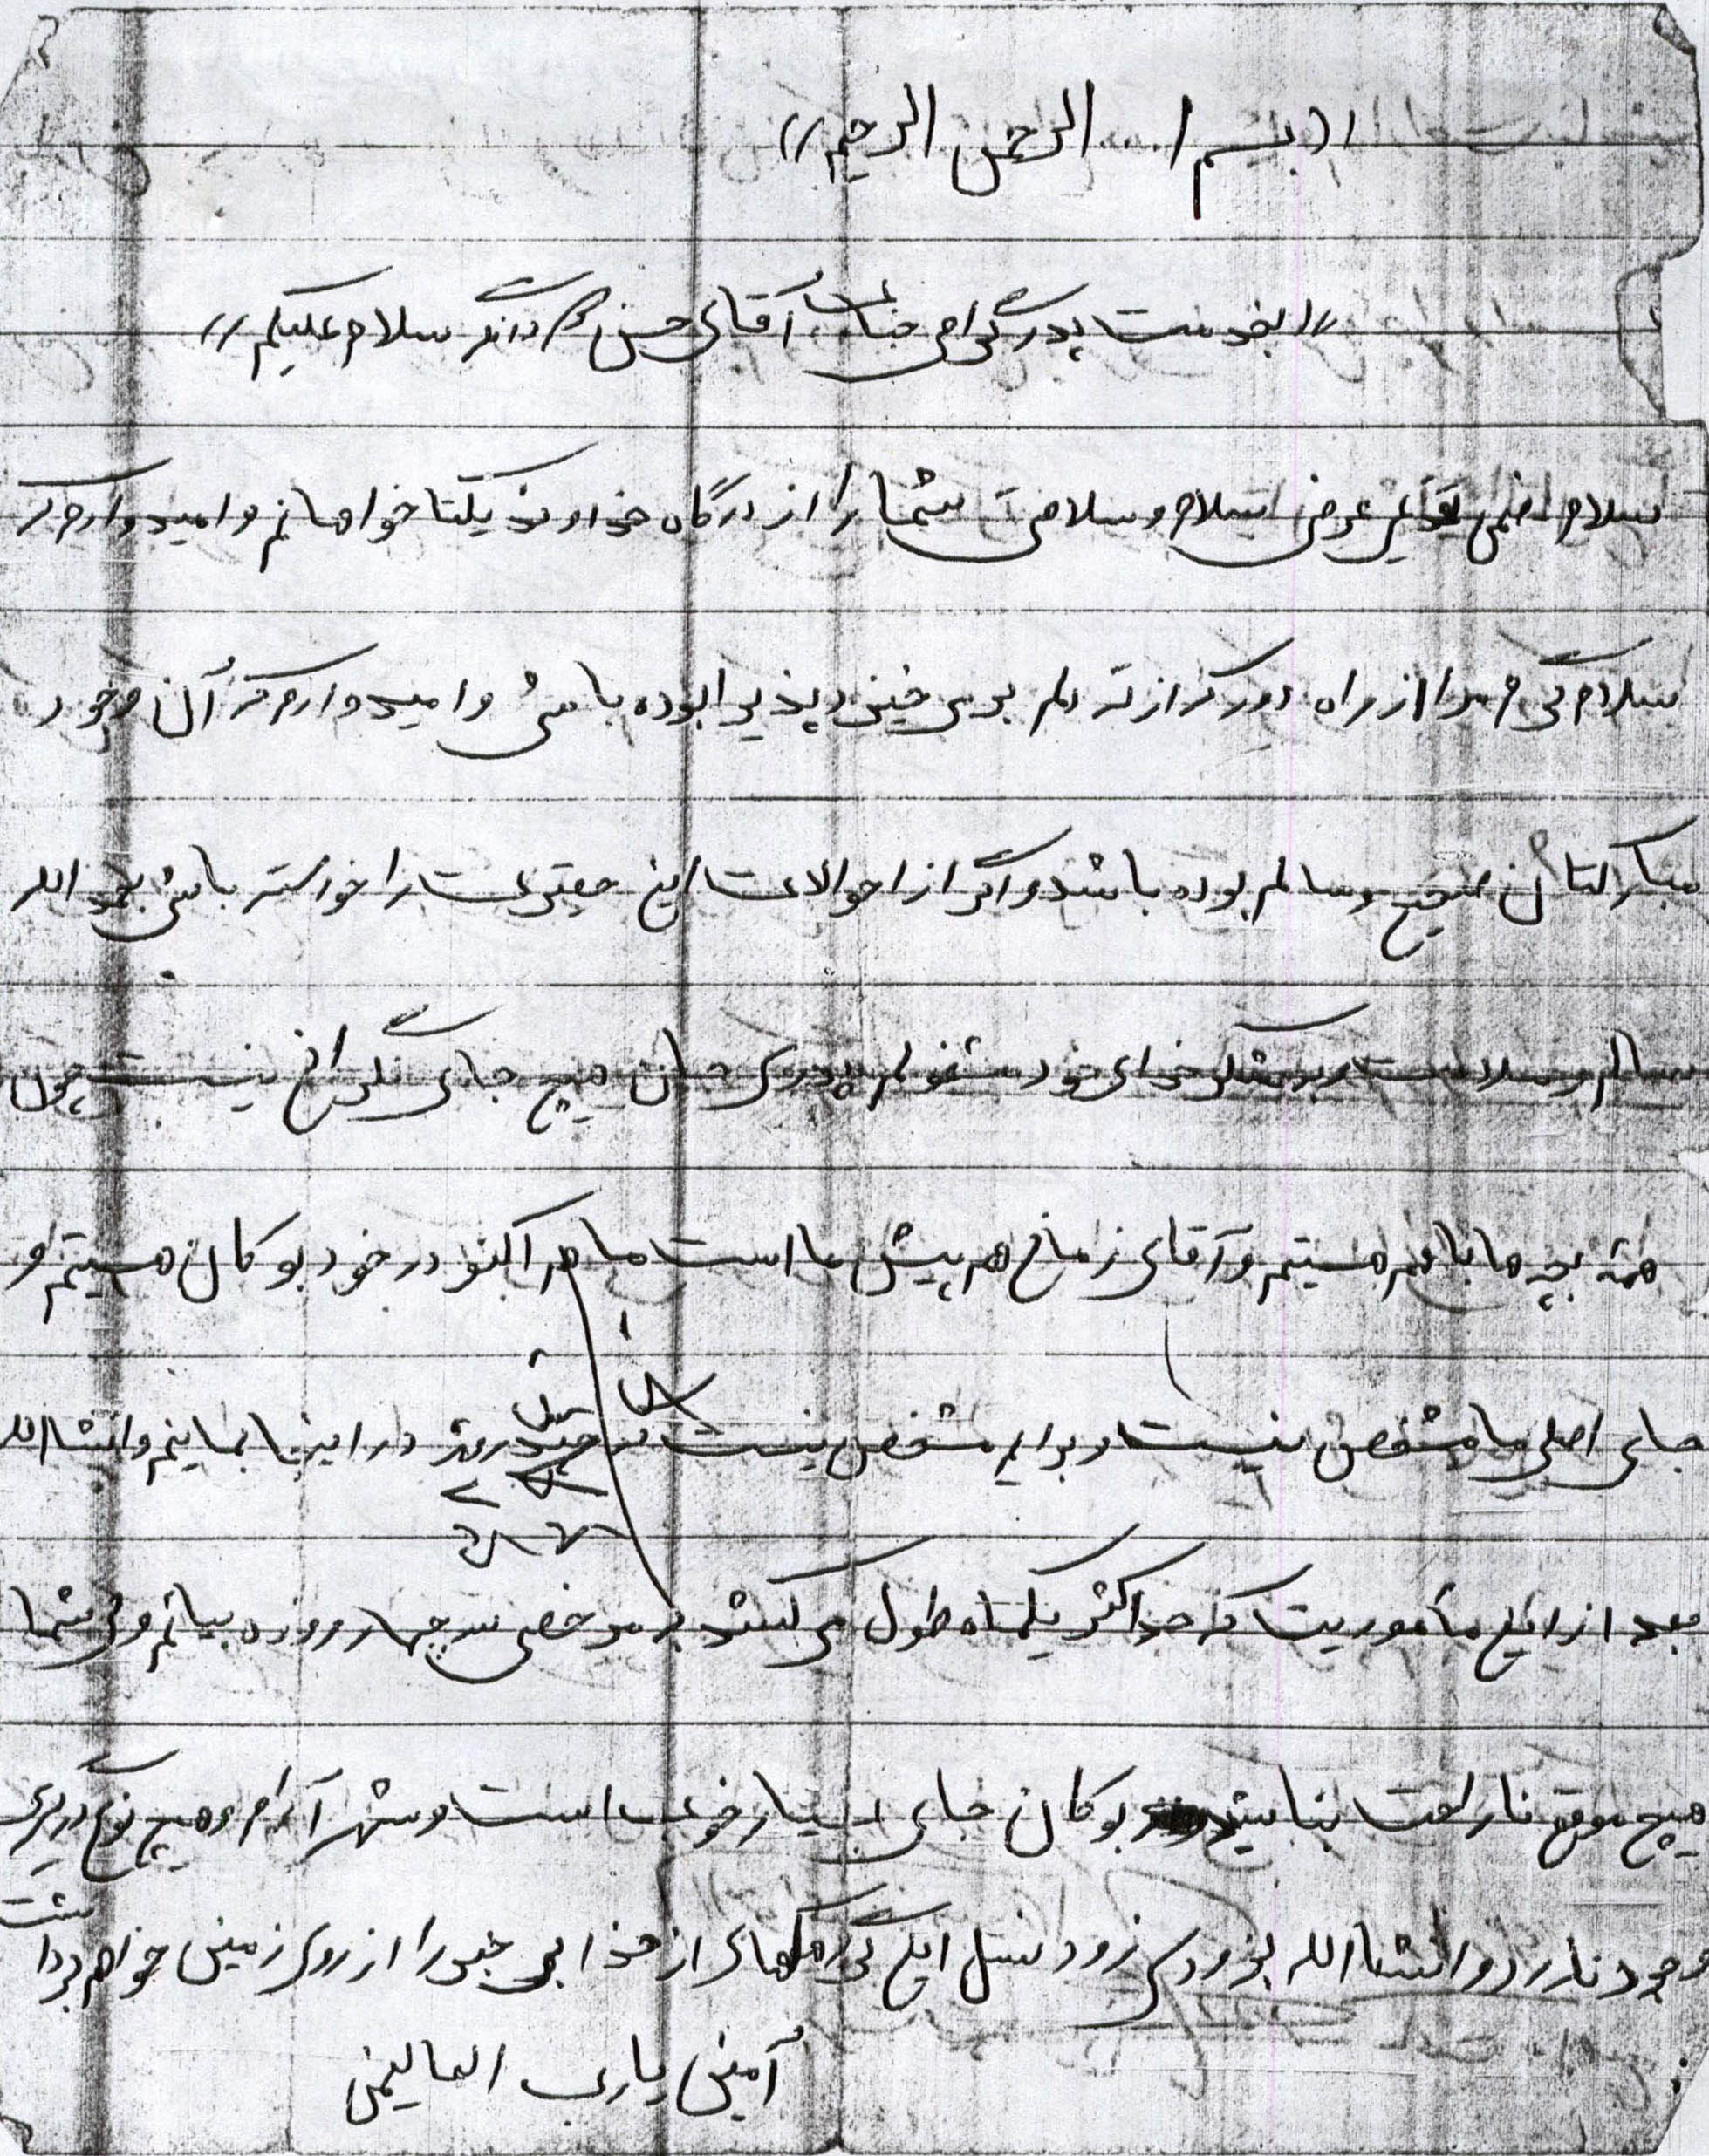 ((بسم ا... الرحمن الرحیم))
((بخدمت پدر گرامی جناب آقای حسن سلام علیکم))
سلام ضمن تقدیم عرض سلام و سلامتی شما را از درگاه خداوند یکتا خواهانم و امیدوارم که
سلام گرم مرا از راه دور که از ته دلم بر می خیزد پذیرا بوده باشی و امیدوارم که آن وجود
مبارکتان صحیح و سالم بوده باشد و اگر از احوالات این حقیر را خواسته باشی بحمد الله
سالم و سلامت و بر شکر خدای خود مشغولم پدر جان هیچ جای نگرانی نیست چون
همه بچه ها با هم هستیم و آقای زمانی هم پیش ما است ما هم اکنو در خود بوکان هستیم و
جای اصلی ما مشخص نیست و برایم مشخص نیست که چند روز در اینجا بمانیم و انشاالله
بعد از این مأموریت که حداکثر یکماه طول می کشد به مرخصی سه چهار روزه بیائم ولی شما
هیچ موقع ناراحت نباشید بوکان جای بسیار خوب است و شهر آرام و هیچ نوع درگیری
وجود ندارد و انشاالله بزودی زود نسل این گرگهای از خدا بی خبر را از روی زمین خواهم برداشت
آمین یا رب العالیمن